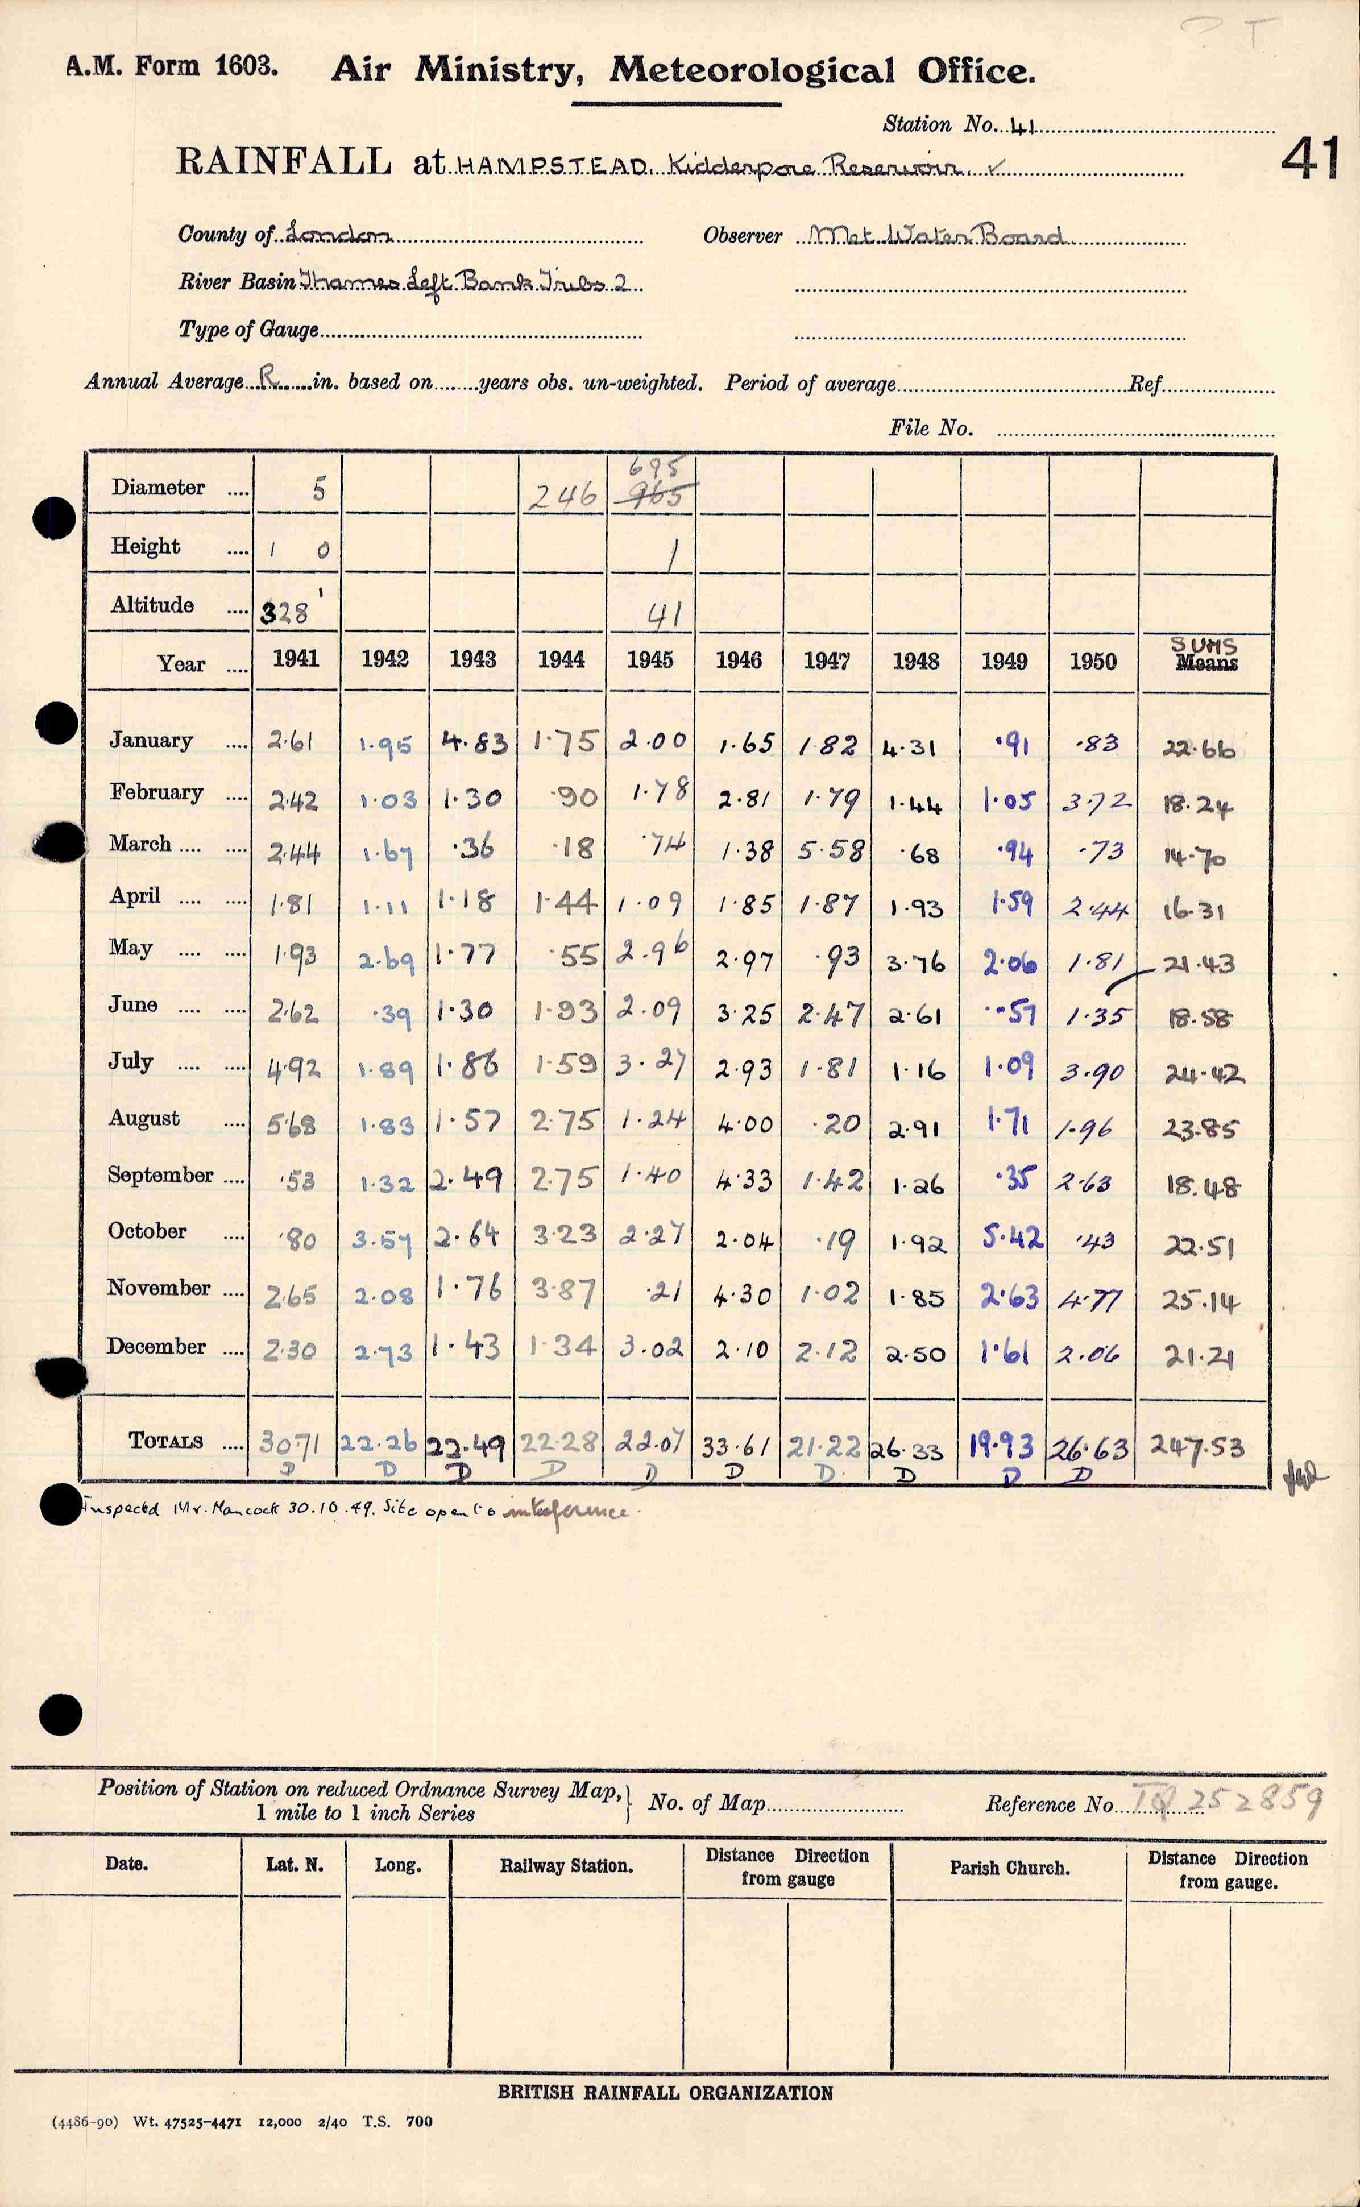 ? T
A.M. Form 1603. Air Ministry, Meteorological Office.
Station No. 41
RAINFALL at HAMPSTEAD. Kidderpore Reservoir. ✓ 41
County of London Observer Met. Water Board
River Basin Thames Left Bank Tribs 2
Type of Gauge
Annual Average R in. based on years obs. un-weighted. Period of average Ref.
File No.
Diameter .... 5 246 695 965
Height .... 1 0 1
Altitude .... 328' 41
Year .... 1941 1942 1943 1944 1945 1946 1947 1948 1949 1950 SUMS Means
January .... 2.61 1.95 4.83 1.75 2.00 1.65 1.82 4.31 .91 .83 22.66
February .... 2.42 1.03 1.30 .90 1.78 2.81 1.79 1.44 1.05 3.72 18.24
March .... .... 2.44 1.67 .36 .18 .74 1.38 5.58 .68 .94 .73 14.70
April .... .... 1.81 1.11 1.18 1.44 1.09 1.85 1.87 1.93 1.59 2.44 16.31
May .... .... 1.93 2.69 1.77 .55 2.96 2.97 .93 3.76 2.06 1.81 21.43
June .... .... 2.62 .39 1.30 1.93 2.09 3.25 2.47 2.61 .57 1.35 18.58
July .... .... 4.92 1.89 1.86 1.59 3.27 2.93 1.81 1.16 1.09 3.90 24.42
August .... 5.68 1.83 1.57 2.75 1.24 4.00 .20 2.91 1.71 1.96 23.85
September .... .53 1.32 2.49 2.75 1.40 4.33 1.42 1.26 .35 2.63 18.48
October .... .80 3.57 2.64 3.23 2.27 2.04 .19 1.92 5.42 .43 22.51
November .... 2.65 2.08 1.76 3.87 .21 4.30 1.02 1.85 2.63 4.77 25.14
December .... 2.30 2.73 1.43 1.34 3.02 2.10 2.12 2.50 1.61 2.06 21.21
TOTALS .... 30.71 22.26 22.49 22.28 22.07 33.61 21.22 26.33 19.93 26.63 247.53
D D D D D D D D D D
Inspected Mr. Hancock 30.10.49. Site open to inteference.
Position of Station on reduced Ordnance Survey Map, 1 mile to 1 inch Series } No. of Map Reference No. TQ 252859
Date. Lat. N. Long. Railway Station. Distance Direction from gauge Parish Church. Distance Direction from gauge.
BRITISH RAINFALL ORGANIZATION
(4486-90) Wt. 47525-4471 12,000 2/40 T.S. 700